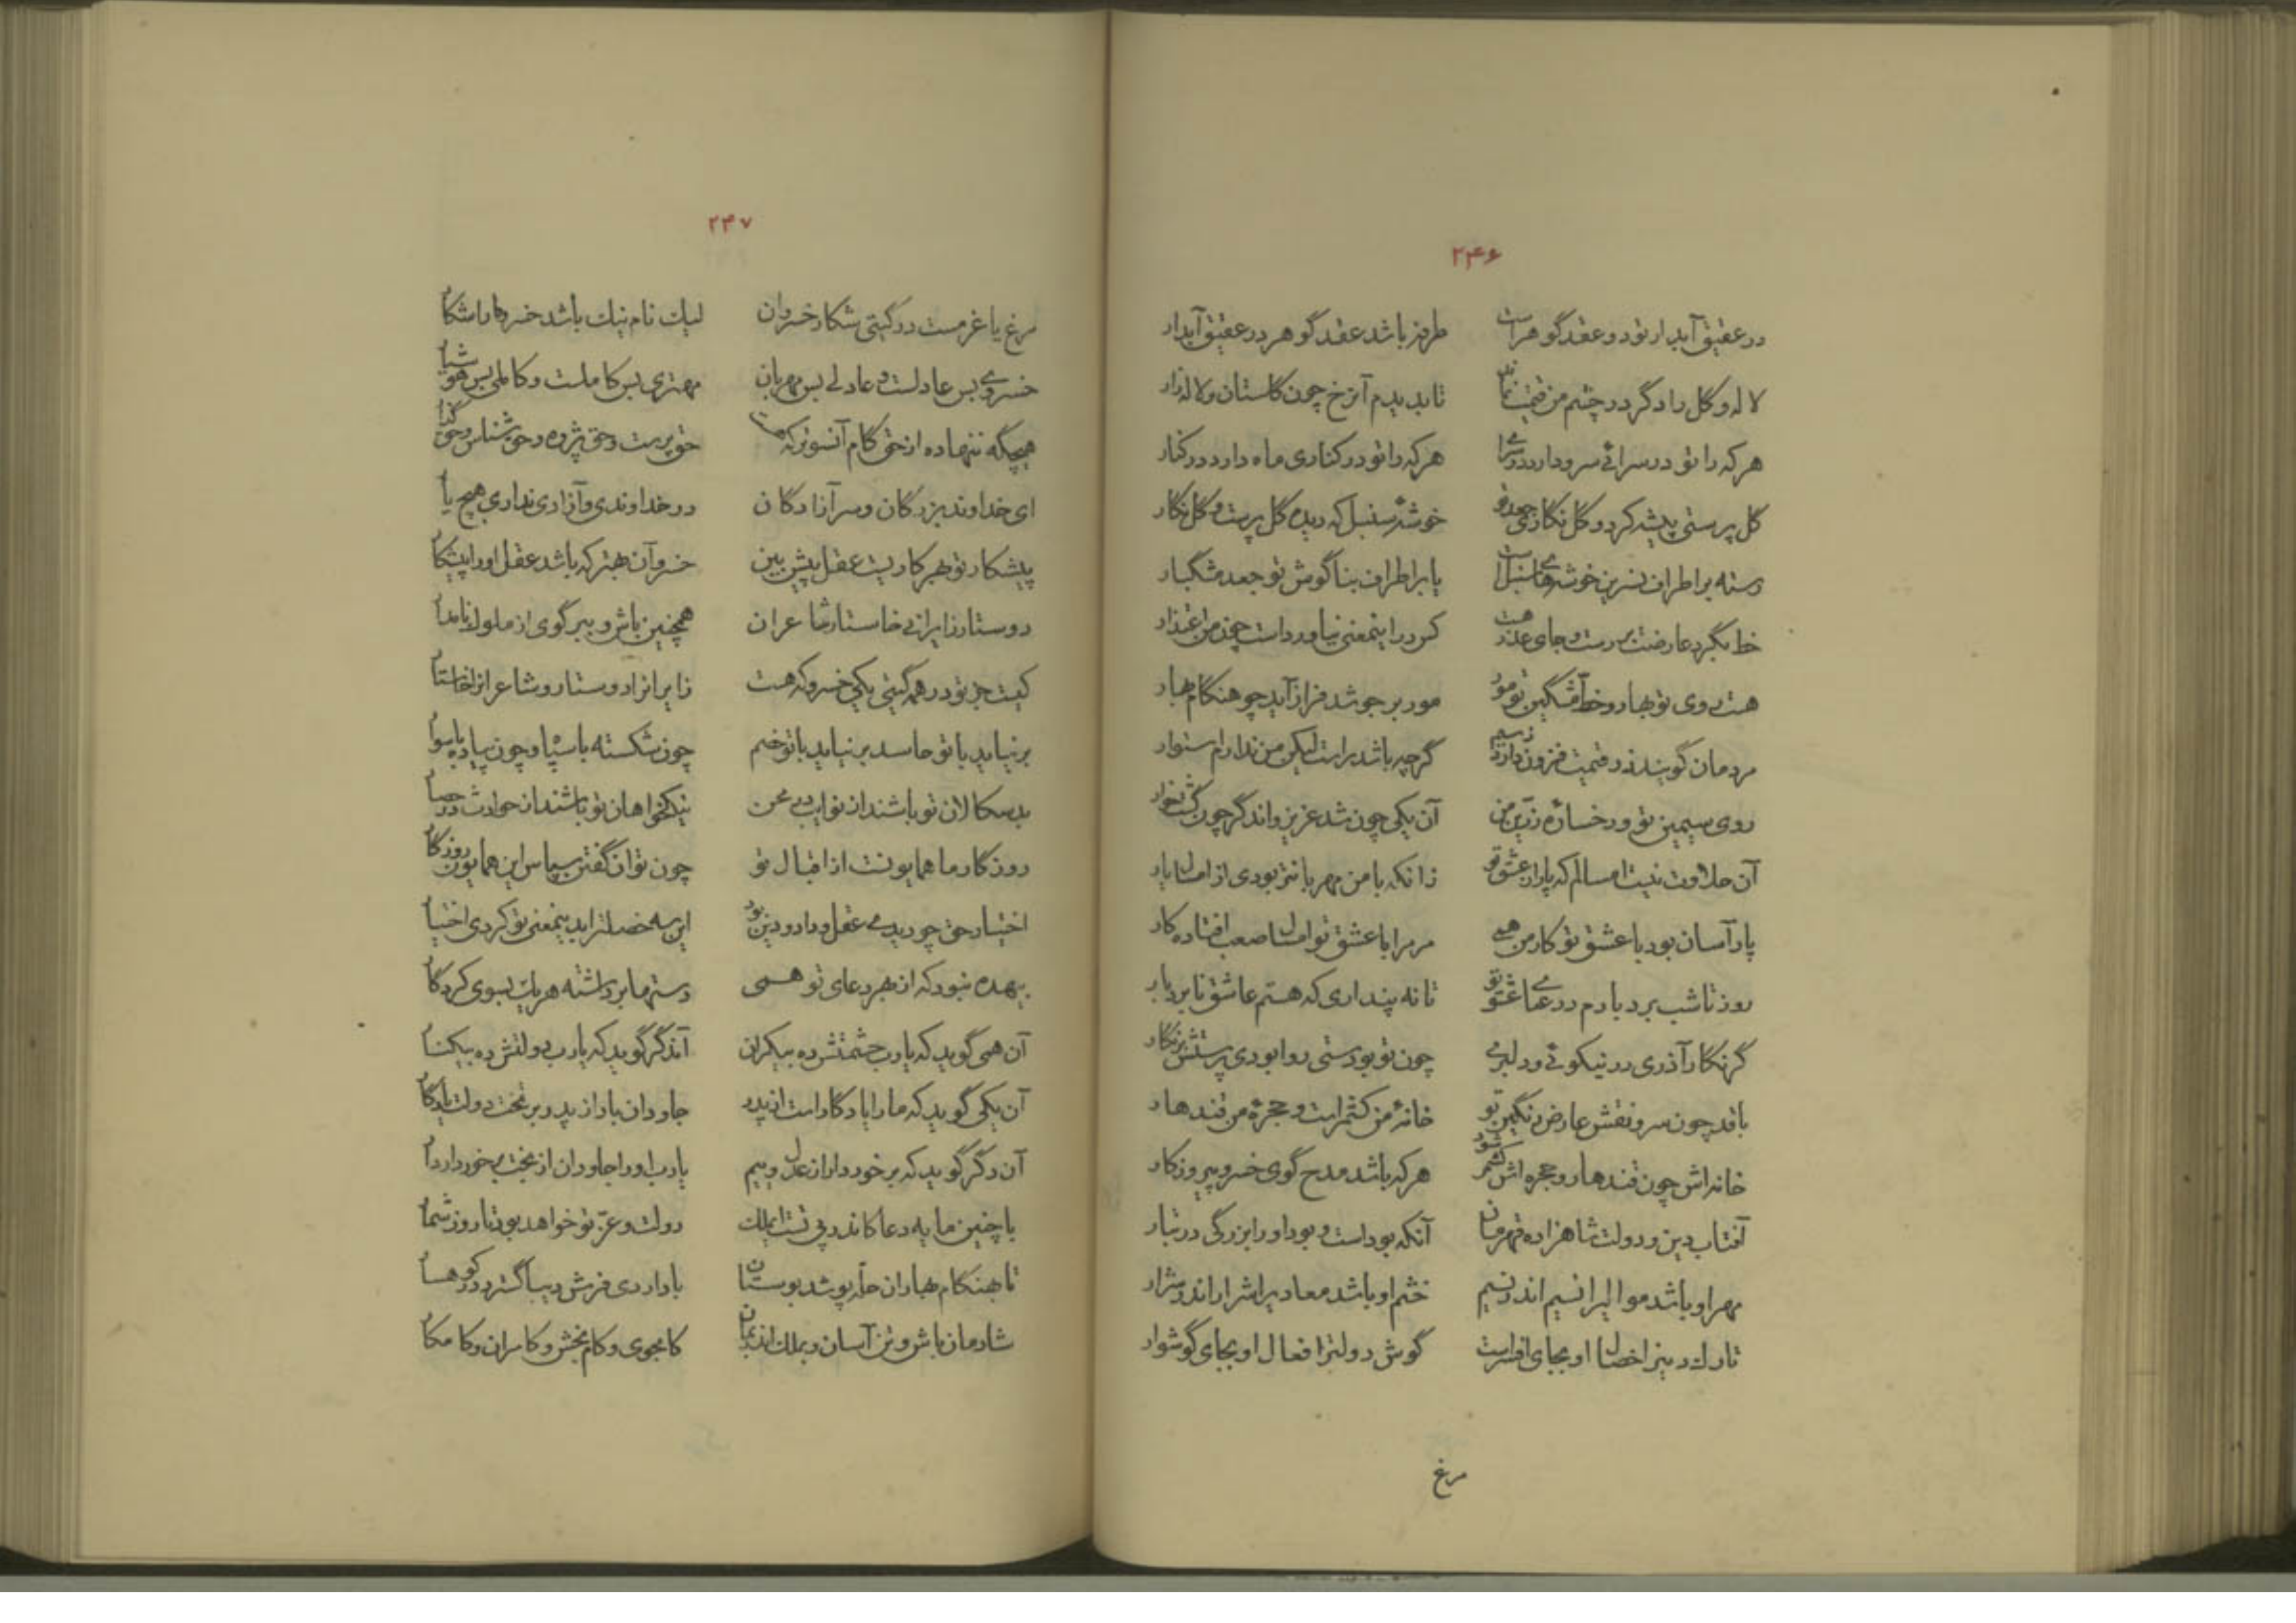 ۲۴۶
در عقیق آبدار تو دو عقد گوهر است طرفه باشد عقد گوهر در عقیق آبدار
لاله و گل را دگر در چشم من قیمت نماند تا بدیدم آن رخ چون گلستان و لاله‌زار
هر که را تو در سرائی سرو دارد در سرا هر که را تو در کناری ماه دارد در کنار
گل پرستی پیشه کرد و گل نگاری جعد تو خوشهٔ سنبل که دیده گل پرست و گل نگار
رسته بر اطراف نسرین خوشه‌های سنبل است یا بر اطراف بناگوش تو جعد مشگبار
خط بگرد عارضت بر رست و جای عذر هست کرد را اینمعنی نیاورد است چون من اعتذار
هست روی تو بهار و خط مشگین تو مور مور بر جوشد فراز آید چو هنگام بهار
مردمان گویند زر قیمت فزون دارد ز سیم گرچه باشد راست لیکن من ندارم استوار
روی سیمین تو و رخسارهٔ زرین من آن یکی چون شد عزیز واندگر چون گشت خوار
آن حلاوت نیست امسالم که پار از عشق تو زانکه با من مهربانتر بودی از امسال پار
پار آسان بود با عشق تو کار من همی مر مرا با عشق تو امسال صعب افتاده کار
روز تا شب برد بارم درد عشق تو تا نه پنداری که هستم عاشق نابردبار
گر نگار آذری در نیکوئی و دلبری چون تو بودستی روا بودی پرستش بر نگار
با قد چون سرو و نقش عارض رنگین تو خانهٔ من کشمر است و حجرهٔ من قندهار
خانه‌اش چون قندهار و حجره‌اش کشمر شود هر که باشد مدح گوی خسرو پیروزگار
آفتاب دین و دولت شاهزاده قهرمان آنکه بود است و بود او را بزرگی در تبار
مهر او باشد موالی را نسیم اندر نسیم خشم او باشد معادی را شرار اندر شرار
تارک دین را خصال او بجای افسر است گوش دولت را فعال او بجای گوشوار
مرغ
۲۴۷
مرغ یا غرمست در گیتی شکار خسروان لیک نام نیک باشد خسرو ما را شکار
خسروی بس عادلست و عادلی بس مهربان مهتری بس کاملست و کاملی بس هوشیار
هیچگه ننهاده از حق گام آنسوتر که حق پرست و حق پژوه و حق شناس و حق گذار
ای خداوند بزرگان و سر آزادگان در خداوندی و آزادی نداری هیچ یار
پیشکار تو بهر کاریست عقل پیش بین خسرو آن بهتر که باشد عقل او را پیشکار
دوستار زایرانی خاستار شاعران همچنین باش و ببر گوی از ملوک نامدار
کیست جز تو در همه گیتی یکی خسرو که هست زایرانرا دوستار و شاعرانرا خاستار
بر نیاید با تو حاسد بر نیاید با تو خصم چون شکسته با سپاه و چون پیاده با سوار
بدسکالان تو باشند از نوایب در محن نیکخواهان تو باشند از حوادث در حصار
روزگار ما همایونست از اقبال تو چون توان گفتن سپاس این همایون روزگار
اختیار حق چو دیدی عقل و داد و دین بود این سه خصلت را بدینمعنی تو کردی اختیار
بیهده نبود که از بهر دعای تو همی دستها برداشته هر یک بسوی کردگار
آن همی گوید که یارب حشمتش ده بیکران آندگر گوید که یارب دولتش ده بیکنار
آن یکی گوید که ما را یادگار است از پدر جاودان باد از پدر بر تخت دولت یادگار
آن دگر گوید که برخوردار از آن عدل وییم یارب او را جاودان از بخت برخوردار دار
با چنین مایه دعا کاندر پی تست ایملک دولت و عزّ تو خواهد بود تا روز شمار
تا بهنگام بهاران حلّه پوشد بوستان باد اردی فرش دیبا گسترد در کوهسار
شادمان باش و تن آسان و بملک اندر بمان کامجوی و کام بخش و کامران و کامکار